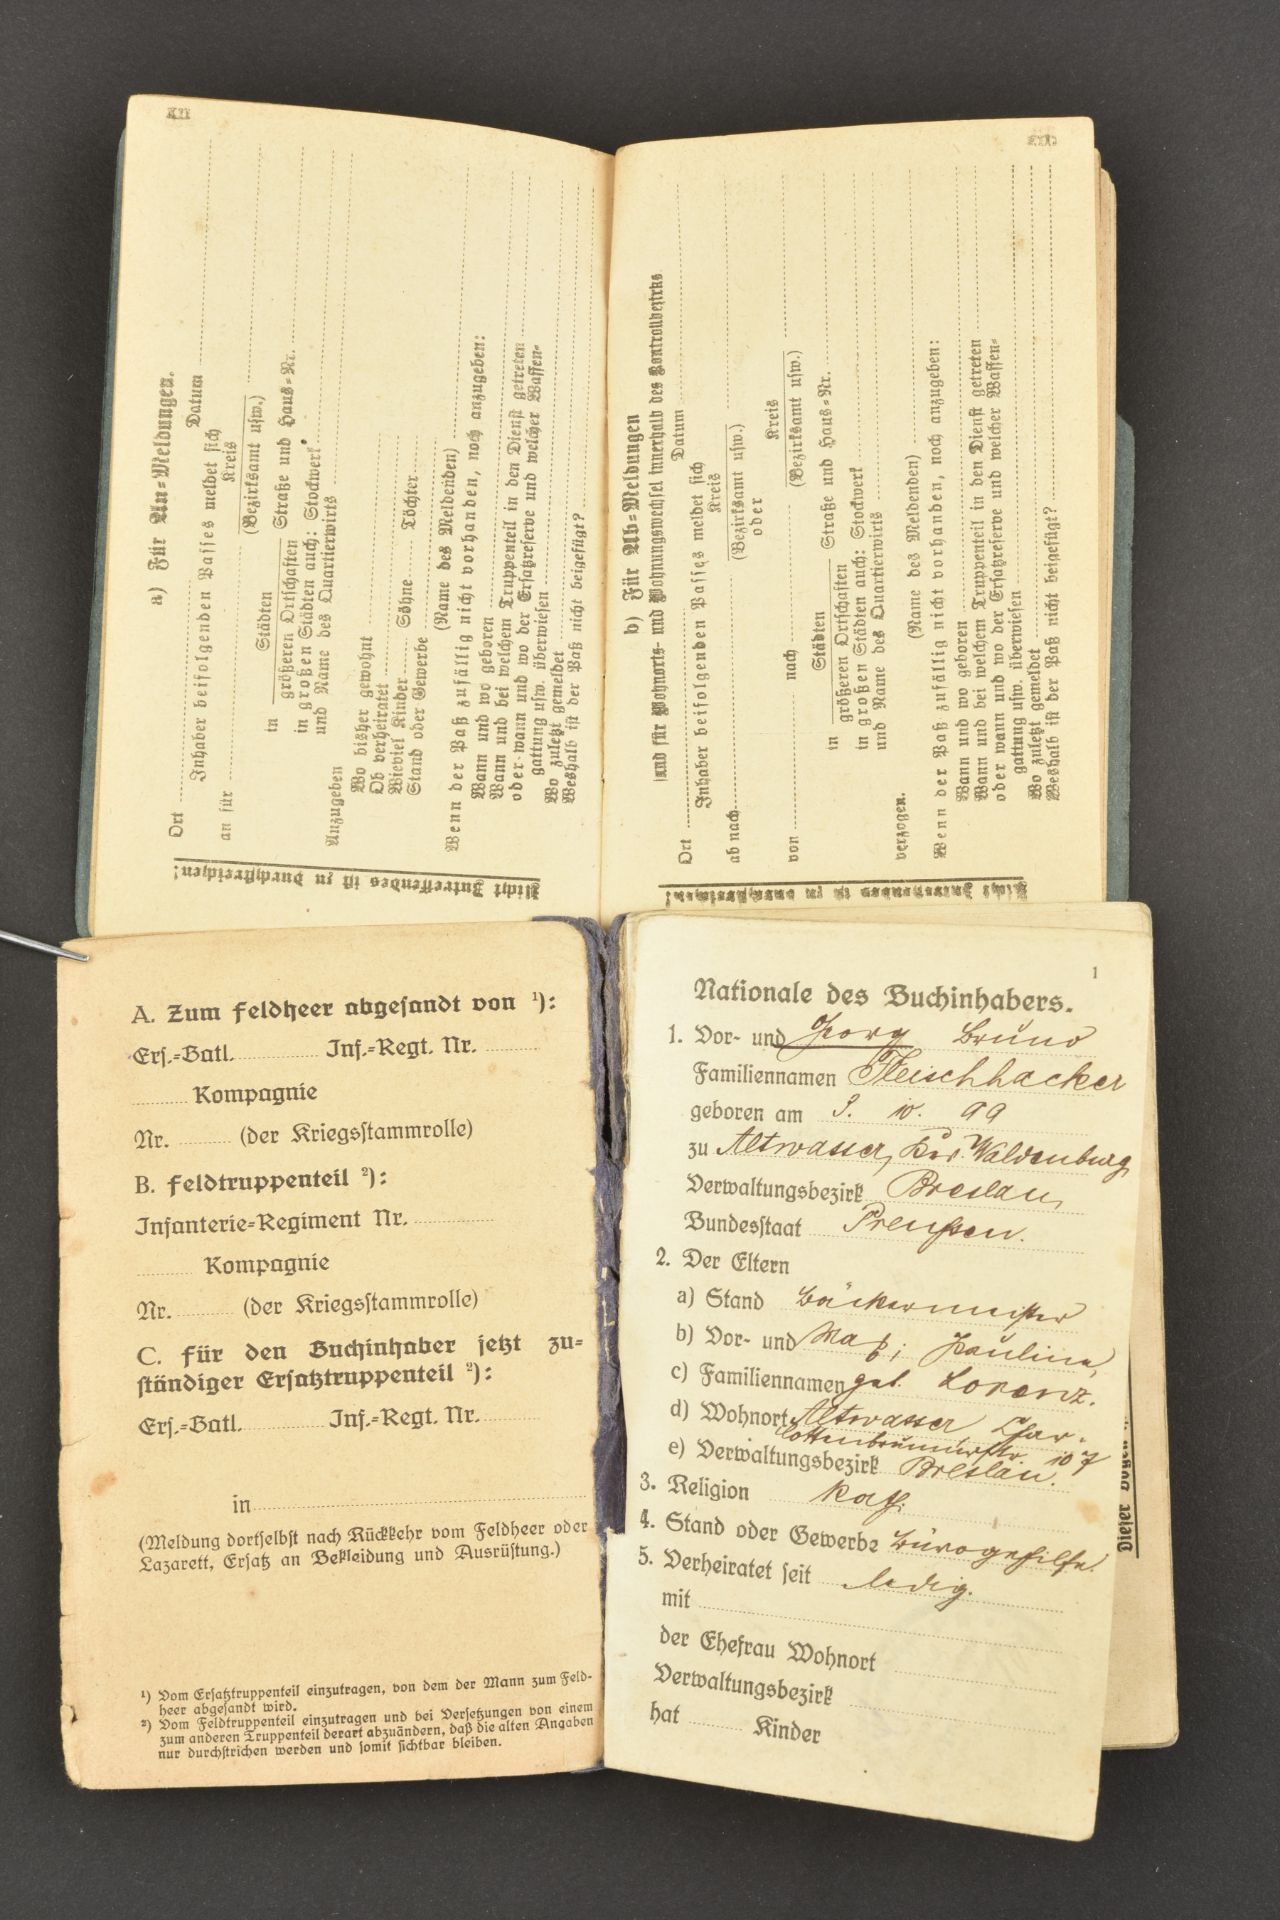 a) Für An-Meldungen.
Ort
Datum
Inhaber beifolgenden Passes meldet sich
an für
Kreis
(Bezirksamt usw.)
in
Städten
größeren Ortschaften
Straße und Haus-Nr.
in großen Städten auch: Stockwerk
und Name des Quartierwirts
Anzugeben
Wo bisher gewohnt
Ob verheiratet
Wieviel Kinder
Söhne
Töchter
Stand oder Gewerbe
(Name des Meldenden)
Wenn der Paß zufällig nicht vorhanden, noch anzugeben:
Wann und wo geboren
Wann und bei welchem Truppenteil in den Dienst getreten
oder wann und wo der Ersatzreserve und welcher Waffen-
gattung usw. überwiesen
Wo zuletzt gemeldet
Weshalb ist der Paß nicht beigefügt?
Nicht Zutreffendes ist zu durchstreichen!
b) Für Ab-Meldungen
(und für Wohnorts- und Wohnungswechsel innerhalb des Kontrollbezirks
Ort
Datum
Inhaber beifolgenden Passes meldet sich
ab nach
Kreis
(Bezirksamt usw.)
oder
von
nach
Kreis
(Bezirksamt usw.)
in
Städten
größeren Ortschaften
Straße und Haus-Nr.
in großen Städten auch: Stockwerk
und Name des Quartierwirts
verzogen.
(Name des Meldenden)
Wenn der Paß zufällig nicht vorhanden, noch anzugeben:
Wann und wo geboren
Wann und bei welchem Truppenteil in den Dienst getreten
oder wann und wo der Ersatzreserve und welcher Waffen-
gattung usw. überwiesen
Wo zuletzt gemeldet
Weshalb ist der Paß nicht beigefügt?
Nicht Zutreffendes ist zu durchstreichen!
A. Zum Feldheer abgesandt von ¹):
Ers.-Batl. Inf.-Regt. Nr.
Kompagnie
Nr. (der Kriegsstammrolle)
B. Feldtruppenteil ²):
Infanterie-Regiment Nr.
Kompagnie
Nr. (der Kriegsstammrolle)
C. Für den Buchinhaber jetzt zu-
ständiger Ersatztruppenteil ²):
Ers.-Batl. Inf.-Regt. Nr.
in
(Meldung dortselbst nach Rückkehr vom Feldheer oder
Lazarett, Ersatz an Bekleidung und Ausrüstung.)
¹) Vom Ersatztruppenteil einzutragen, von dem der Mann zum Feld-
heer abgesandt wird.
²) Vom Feldtruppenteil einzutragen und bei Versetzungen von einem
zum anderen Truppenteil derart abzuändern, daß die alten Angaben
nur durchstrichen werden und somit sichtbar bleiben.
1
Nationale des Buchinhabers.
1. Vor- und Georg Bruno
Familiennamen Fleischhacker
geboren am 99
zu Altwasser, Waldenburg
Verwaltungsbezirk Breslau
Bundesstaat Preußen.
2. Der Eltern
a) Stand Bäckermeister
b) Vor- und Paulina
c) Familiennamen geb. Lorenz.
d) Wohnort Altwasser Char-
lottenbrunnerstr. 107
e) Verwaltungsbezirk Breslau.
3. Religion kath.
4. Stand oder Gewerbe Bürogehilfe
5. Verheiratet seit ledig.
mit
der Ehefrau Wohnort
Verwaltungsbezirk
hat Kinder
Dieser Bogen